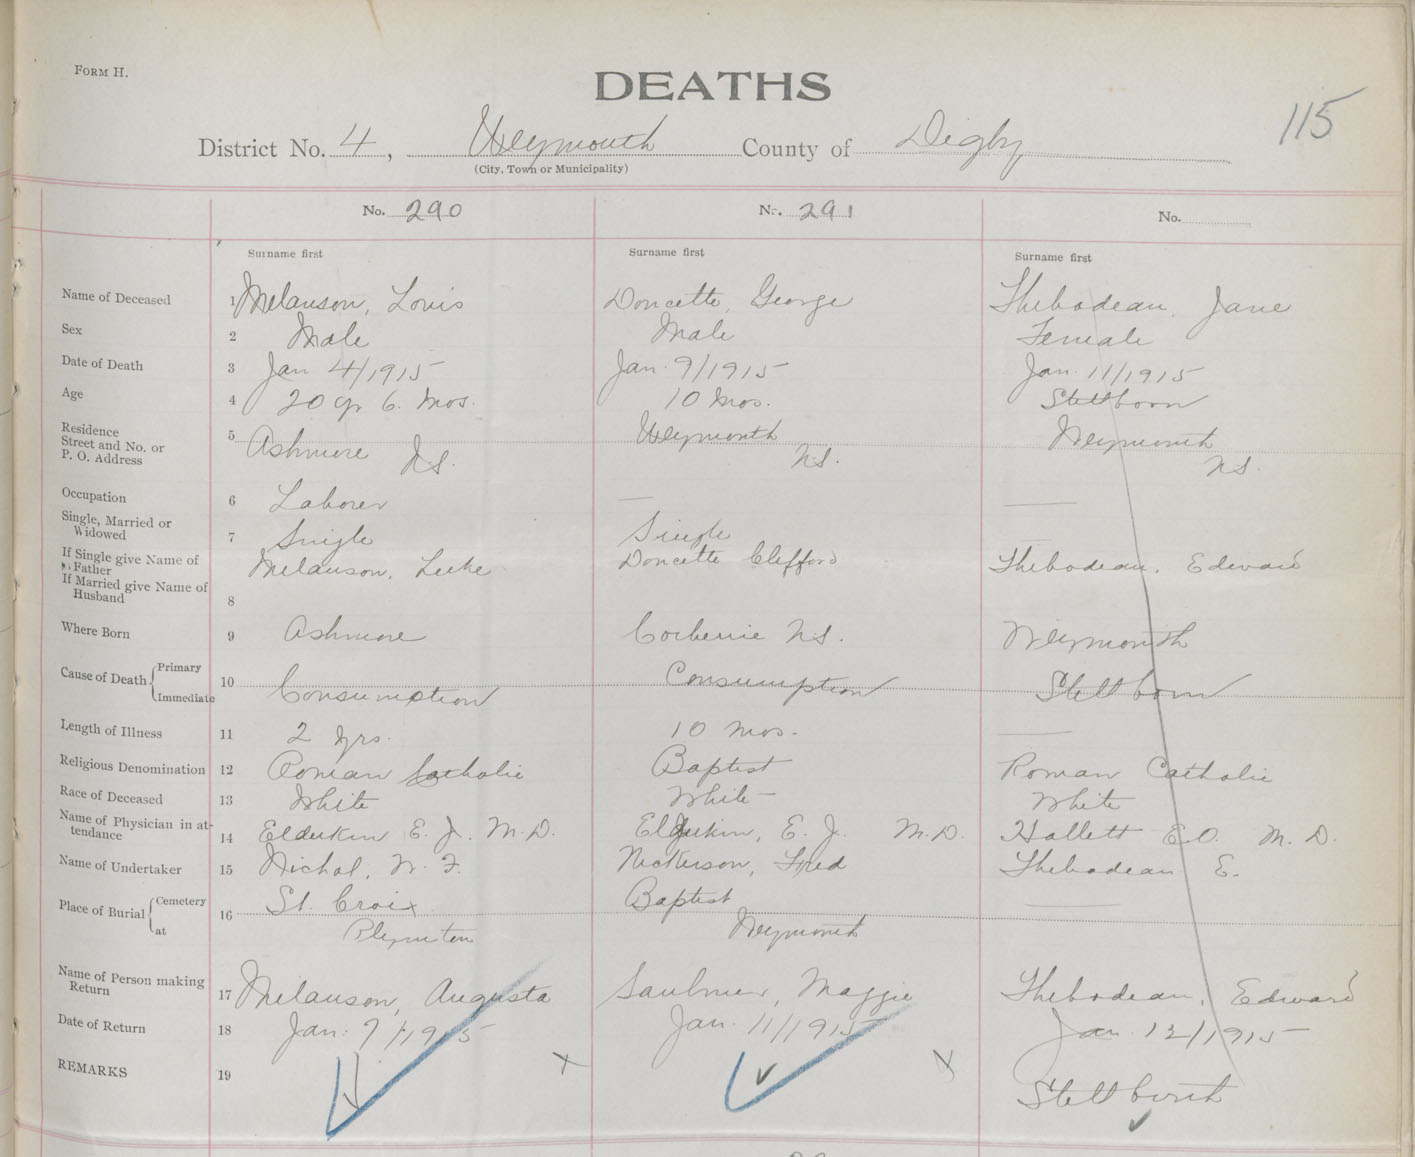 FORM H.
DEATHS
115
District No. 4, Weymouth County of Digby
(City, Town or Municipality)
No. 290 No. 291 No.
Surname first Surname first Surname first
Name of Deceased 1 Melanson, Louis Doucette, George Thebodeau, Jane
Sex 2 Male Male Female
Date of Death 3 Jan 4/1915 Jan. 9/1915 Jan. 11/1915
Age 4 20 yr 6. Mos. 10 Mos. Stillborn
Residence
Street and No. or 5 Ashmore N.S. Weymouth N.S. Weymouth N.S.
P. O. Address
Occupation 6 Laborer — —
Single, Married or
Widowed 7 Single Single —
If Single give Name of
Father Melanson, Luke Doucette Clifford Thebodeau, Edward
If Married give Name of
Husband 8
Where Born 9 Ashmore Corberrie N.S. Weymouth
Cause of Death { Primary
Immediate 10 Consumption Consumption Stillborn
Length of Illness 11 2 yrs. 10 Mos. —
Religious Denomination 12 Roman Catholic Baptist Roman Catholic
Race of Deceased 13 White White White
Name of Physician in at-
tendance 14 Elderkin E. J. M.D. Elderkin, E. J. M.D. Hallett E.O. M.D.
Name of Undertaker 15 Nichol, W. F. Nickerson, Fred Thebodeau E.
Place of Burial { Cemetery 16 St. Croix Baptist —
at Plympton Weymouth
Name of Person making
Return 17 Melanson, Augusta Saulnier, Maggie Thebodeau, Edward
Date of Return 18 Jan. 7/1915 Jan. 11/1915 Jan 12/1915
REMARKS 19 Stillbirth